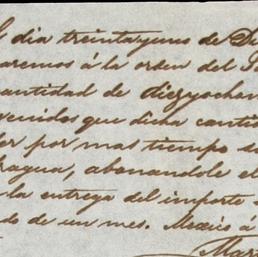 l dia treintayuno de De
aremos á la orden del S
antidad de diezyochom
venidos que dicha cantid
der por mas tiempo se
ragua, abonandole el
la entrega del importe
do de un mes. Mexico á
Mar